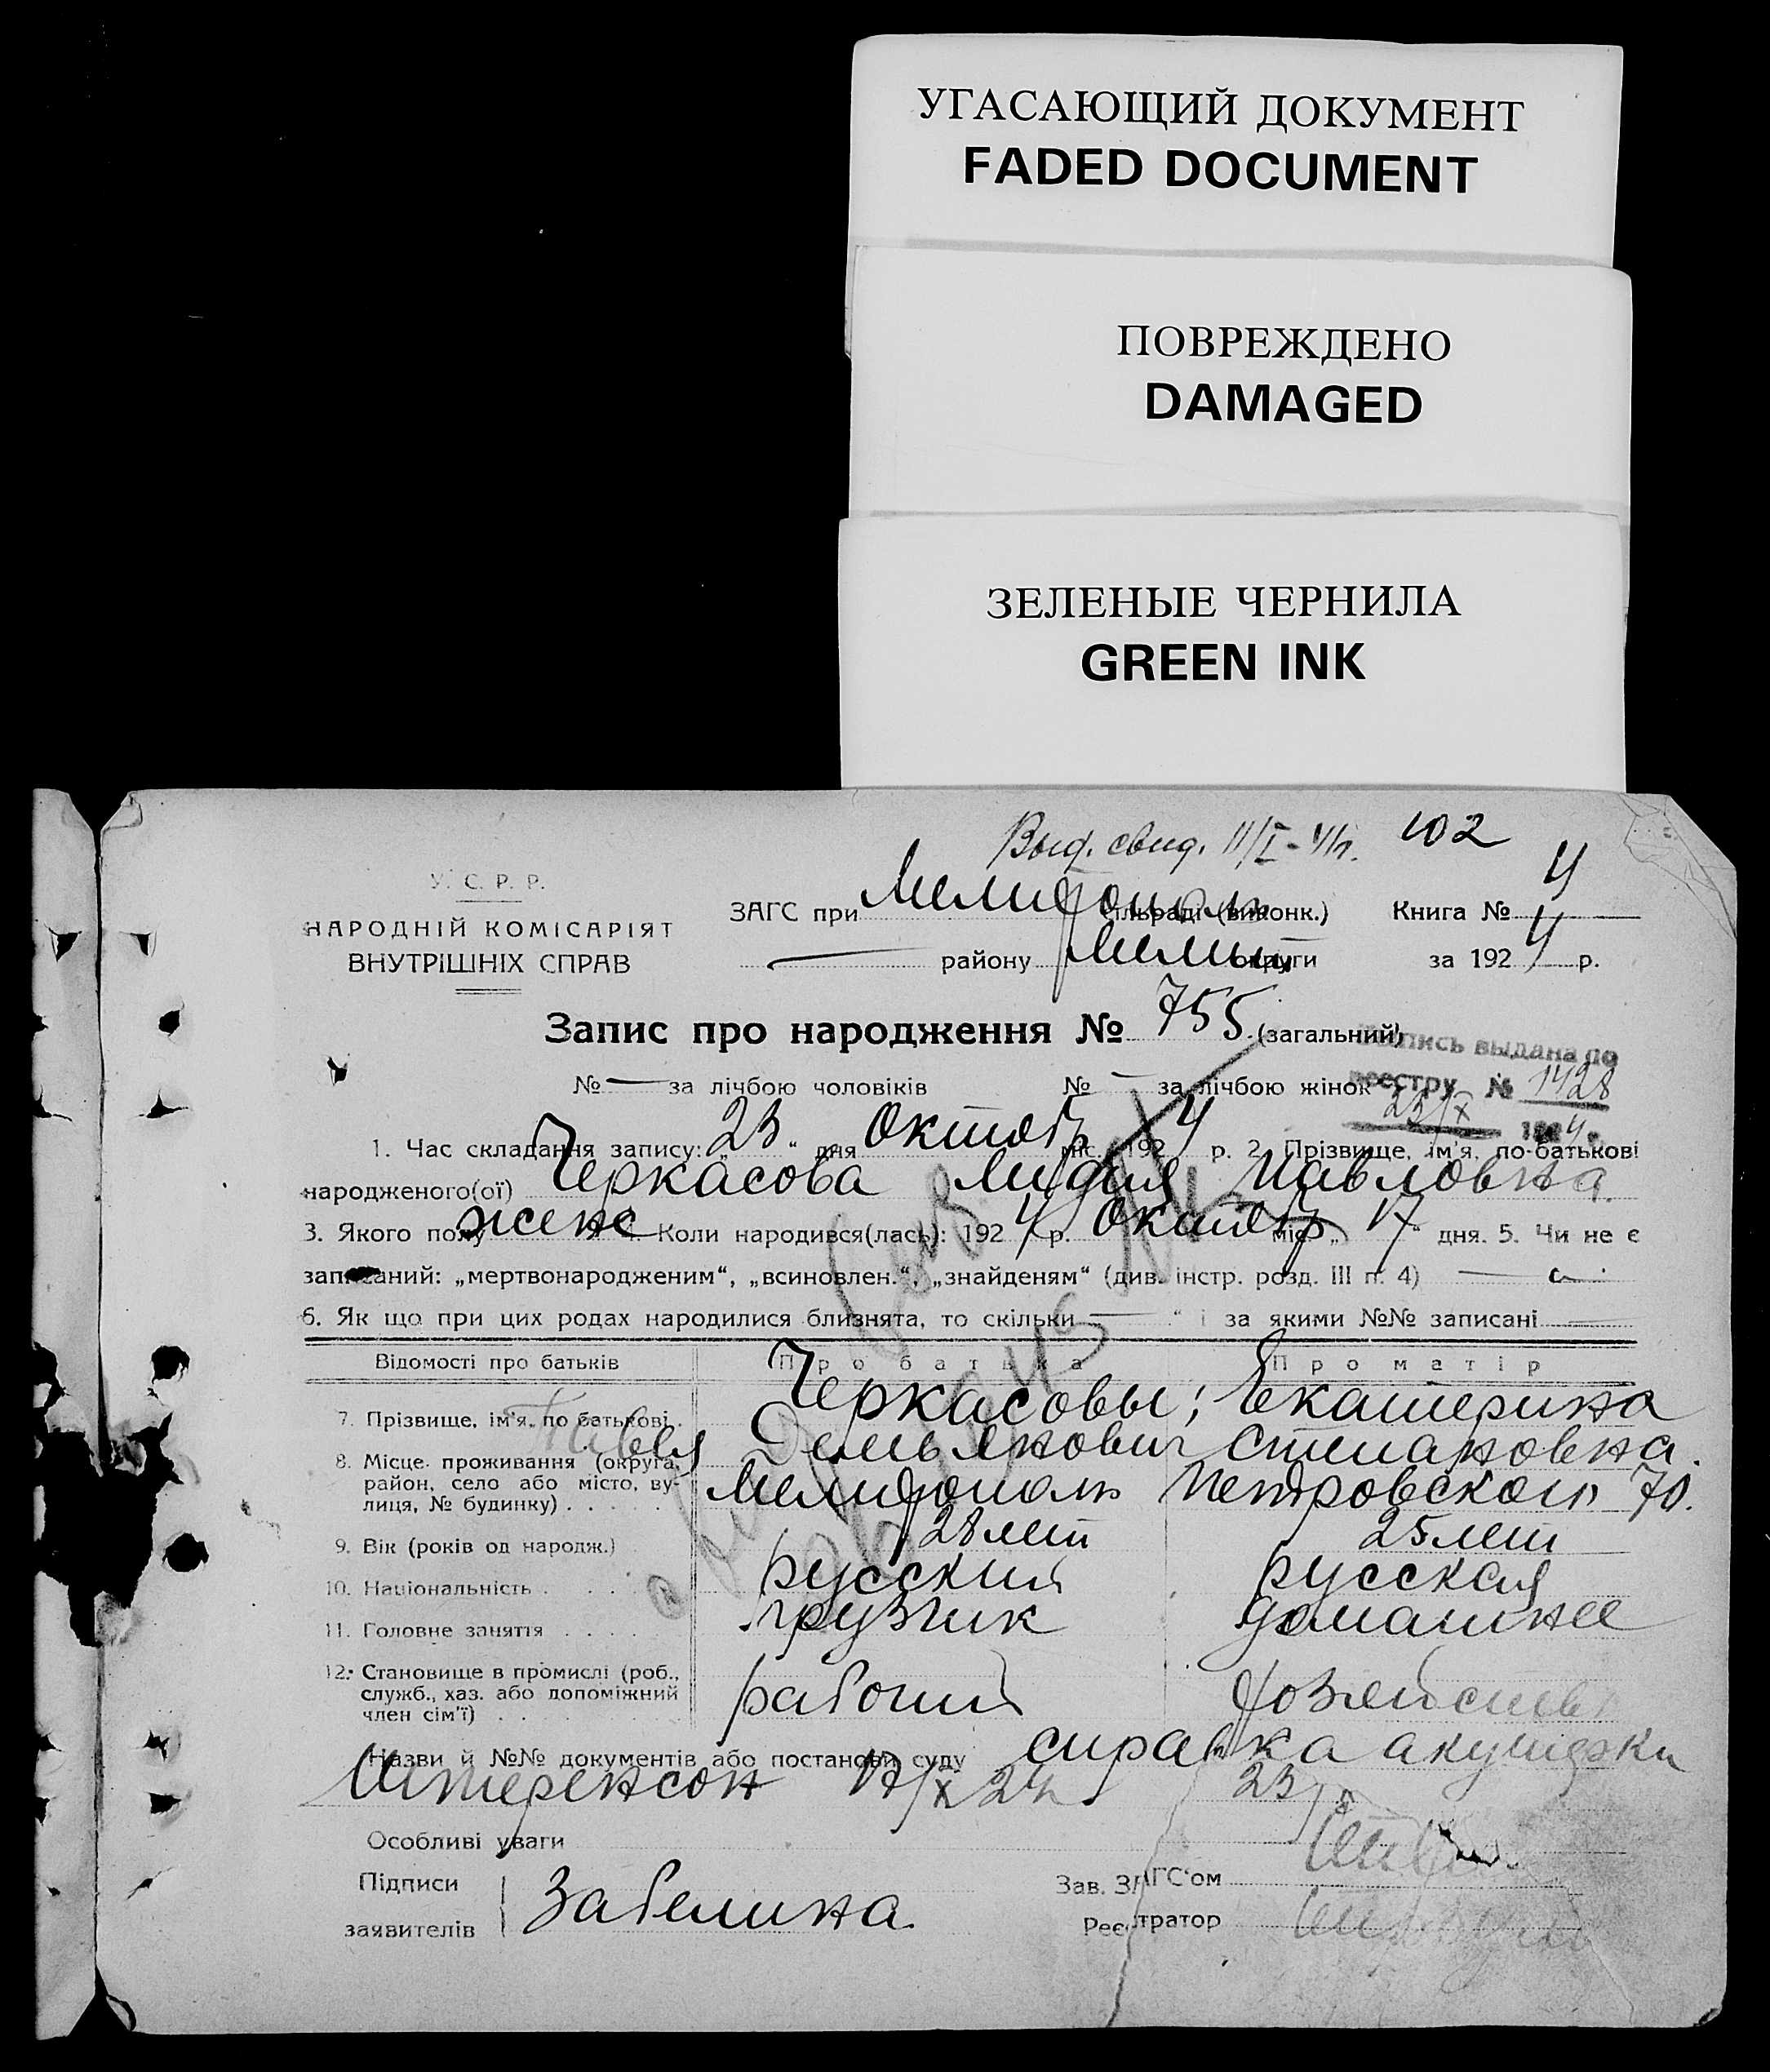 УГАСАЮЩИЙ ДОКУМЕНТ
FADED DOCUMENT
ПОВРЕЖДЕНО
DAMAGED
ЗЕЛЕНЫЕ ЧЕРНИЛА
GREEN INK
Выд. свид. 11/I 102
У. С. Р. Р.
НАРОДНІЙ КОМІСАРІЯТ
ВНУТРІШНІХ СПРАВ
ЗАГС при Мелитополь сільраді (виконк.) Книга № 4
— району Мелит округи за 1924 р.
Запис про народження № 755 (загальний)
Запись выдана по
реестру № 1428
23/X
№ — за лічбою чоловіків № — за лічбою жінок
1. Час складання запису: „23“ дня Октябр міс. 1924 р. 2. Прізвище, ім'я, по-батькові
народженого(ої) Черкасова Лидия Павловна.
3. Якого полу женс 4. Коли народився(лась): 1924 р. Октябр міс. „17“ дня. 5. Чи не є
записаний: „мертвонародженим“, „всиновлен.“, „знайденям“ (див. інстр. розд. III п. 4) —
6. Як що при цих родах народилися близнята, то скільки — “ і за якими №№ записані —
Відомості про батьків Про батька Про матір
7. Прізвище, ім'я, по батькові Черкасовы; Екатерина
Павел Демьянович Степановна.
8. Місце проживання (округа, район, село або місто, вулиця, № будинку) Мелитополь Петровского 70.
9. Вік (років од народж.) 28 лет 25 лет
10. Національність русский русская
11. Головне заняття грузчик домашнее
12. Становище в промислі (роб., служб., хаз. або допоміжний член сім'ї) рабочий хозяйство
Назви й №№ документів або постанови суду справка акушерки
17/X 24 23/X
Особливі уваги
Підписи
заявителів Забелина.
Зав. ЗАГС'ом
Реєстратор